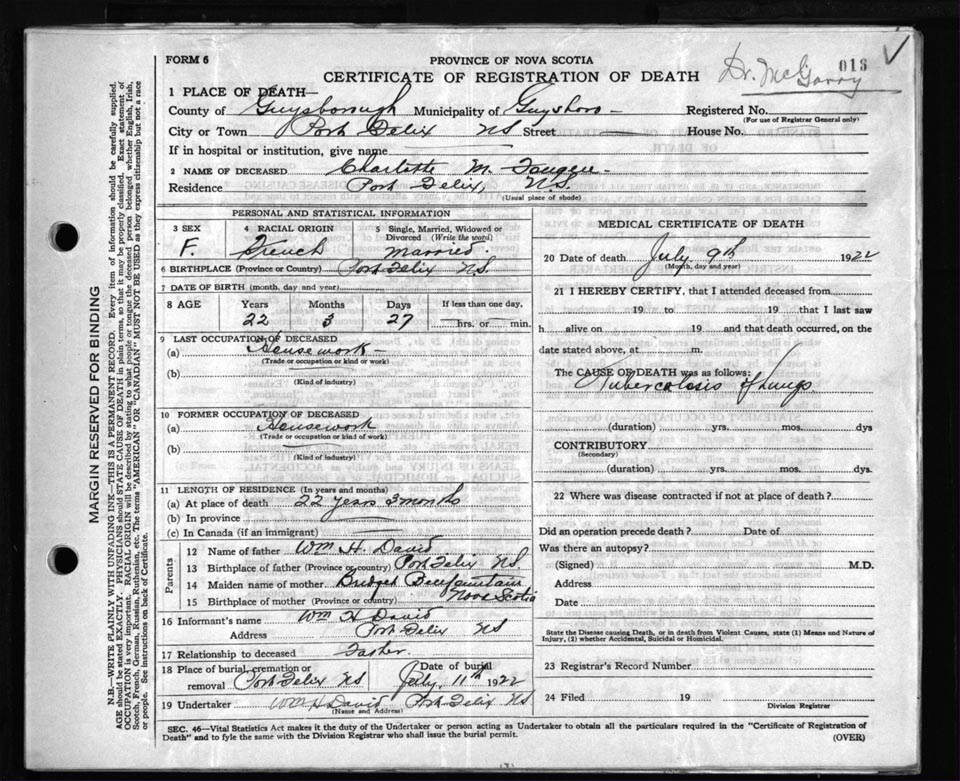 FORM 6
PROVINCE OF NOVA SCOTIA
CERTIFICATE OF REGISTRATION OF DEATH
Dr. McGarry
018
1 PLACE OF DEATH—
County of Guysborough Municipality of Guysboro - Registered No.
(For use of Registrar General only)
City or Town Port Felix NS Street House No.
If in hospital or institution, give name
2 NAME OF DECEASED Charlotte M. Fougere
Residence Port Felix, N.S.
(Usual place of abode)
PERSONAL AND STATISTICAL INFORMATION
3 SEX 4 RACIAL ORIGIN 5 Single, Married, Widowed or
Divorced (Write the word)
F. French Married.
6 BIRTHPLACE (Province or Country) Port Felix NS.
7 DATE OF BIRTH (month, day and year)
8 AGE Years Months Days If less than one day,
22 3 27 hrs. or min.
9 LAST OCCUPATION OF DECEASED
(a) Housework -
(Trade or occupation or kind of work)
(b)
(Kind of industry)
10 FORMER OCCUPATION OF DECEASED
(a) Housework
(Trade or occupation or kind of work)
(b)
(Kind of industry)
11 LENGTH OF RESIDENCE (In years and months)
(a) At place of death 22 years 3 months
(b) In province
(c) In Canada (if an immigrant)
Parents
12 Name of father Wm H. David
13 Birthplace of father (Province or country) Port Felix NS.
14 Maiden name of mother Bridget
15 Birthplace of mother (Province or country) Nova Scotia
16 Informant's name Wm H David
Address Port Felix NS
17 Relationship to deceased Father.
18 Place of burial, cremation or Date of burial
removal Port Felix NS July 11th 1922
19 Undertaker Wm H David Port Felix NS
(Name and Address)
MEDICAL CERTIFICATE OF DEATH
20 Date of death July 9th 1922
(Month, day and year)
21 I HEREBY CERTIFY, that I attended deceased from
19 to 19 that I last saw
h alive on 19 and that death occurred, on the
date stated above, at m.
The CAUSE OF DEATH was as follows:
Tuberculosis of Lungs
(duration) yrs. mos. dys
CONTRIBUTORY
(Secondary)
(duration) yrs. mos. dys
22 Where was disease contracted if not at place of death?
Did an operation precede death? Date of
Was there an autopsy?
(Signed) M.D.
Address
Date
State the Disease causing Death, or in death from Violent Causes, state (1) Means and Nature of
Injury, (2) whether Accidental, Suicidal or Homicidal.
23 Registrar's Record Number
24 Filed 19
Division Registrar
SEC. 46—Vital Statistics Act makes it the duty of the Undertaker or person acting as Undertaker to obtain all the particulars required in the "Certificate of Registration of
Death" and to fyle the same with the Division Registrar who shall issue the burial permit.
(OVER)
MARGIN RESERVED FOR BINDING
N.B.—WRITE PLAINLY WITH UNFADING INK—THIS IS A PERMANENT RECORD. Every item of information should be carefully supplied.
AGE should be stated EXACTLY. PHYSICIANS should STATE CAUSE OF DEATH in plain terms, so that it may be properly classified. Exact statement of
OCCUPATION is very important. RACIAL ORIGIN will be described by stating to what people or tongue the deceased person belonged whether English, Irish,
Scotch, French, German, Russian, Ruthenian, etc. The terms "AMERICAN" OR "CANADIAN" MUST NOT BE USED as they express citizenship but not a race
or people. See instructions on back of Certificate.